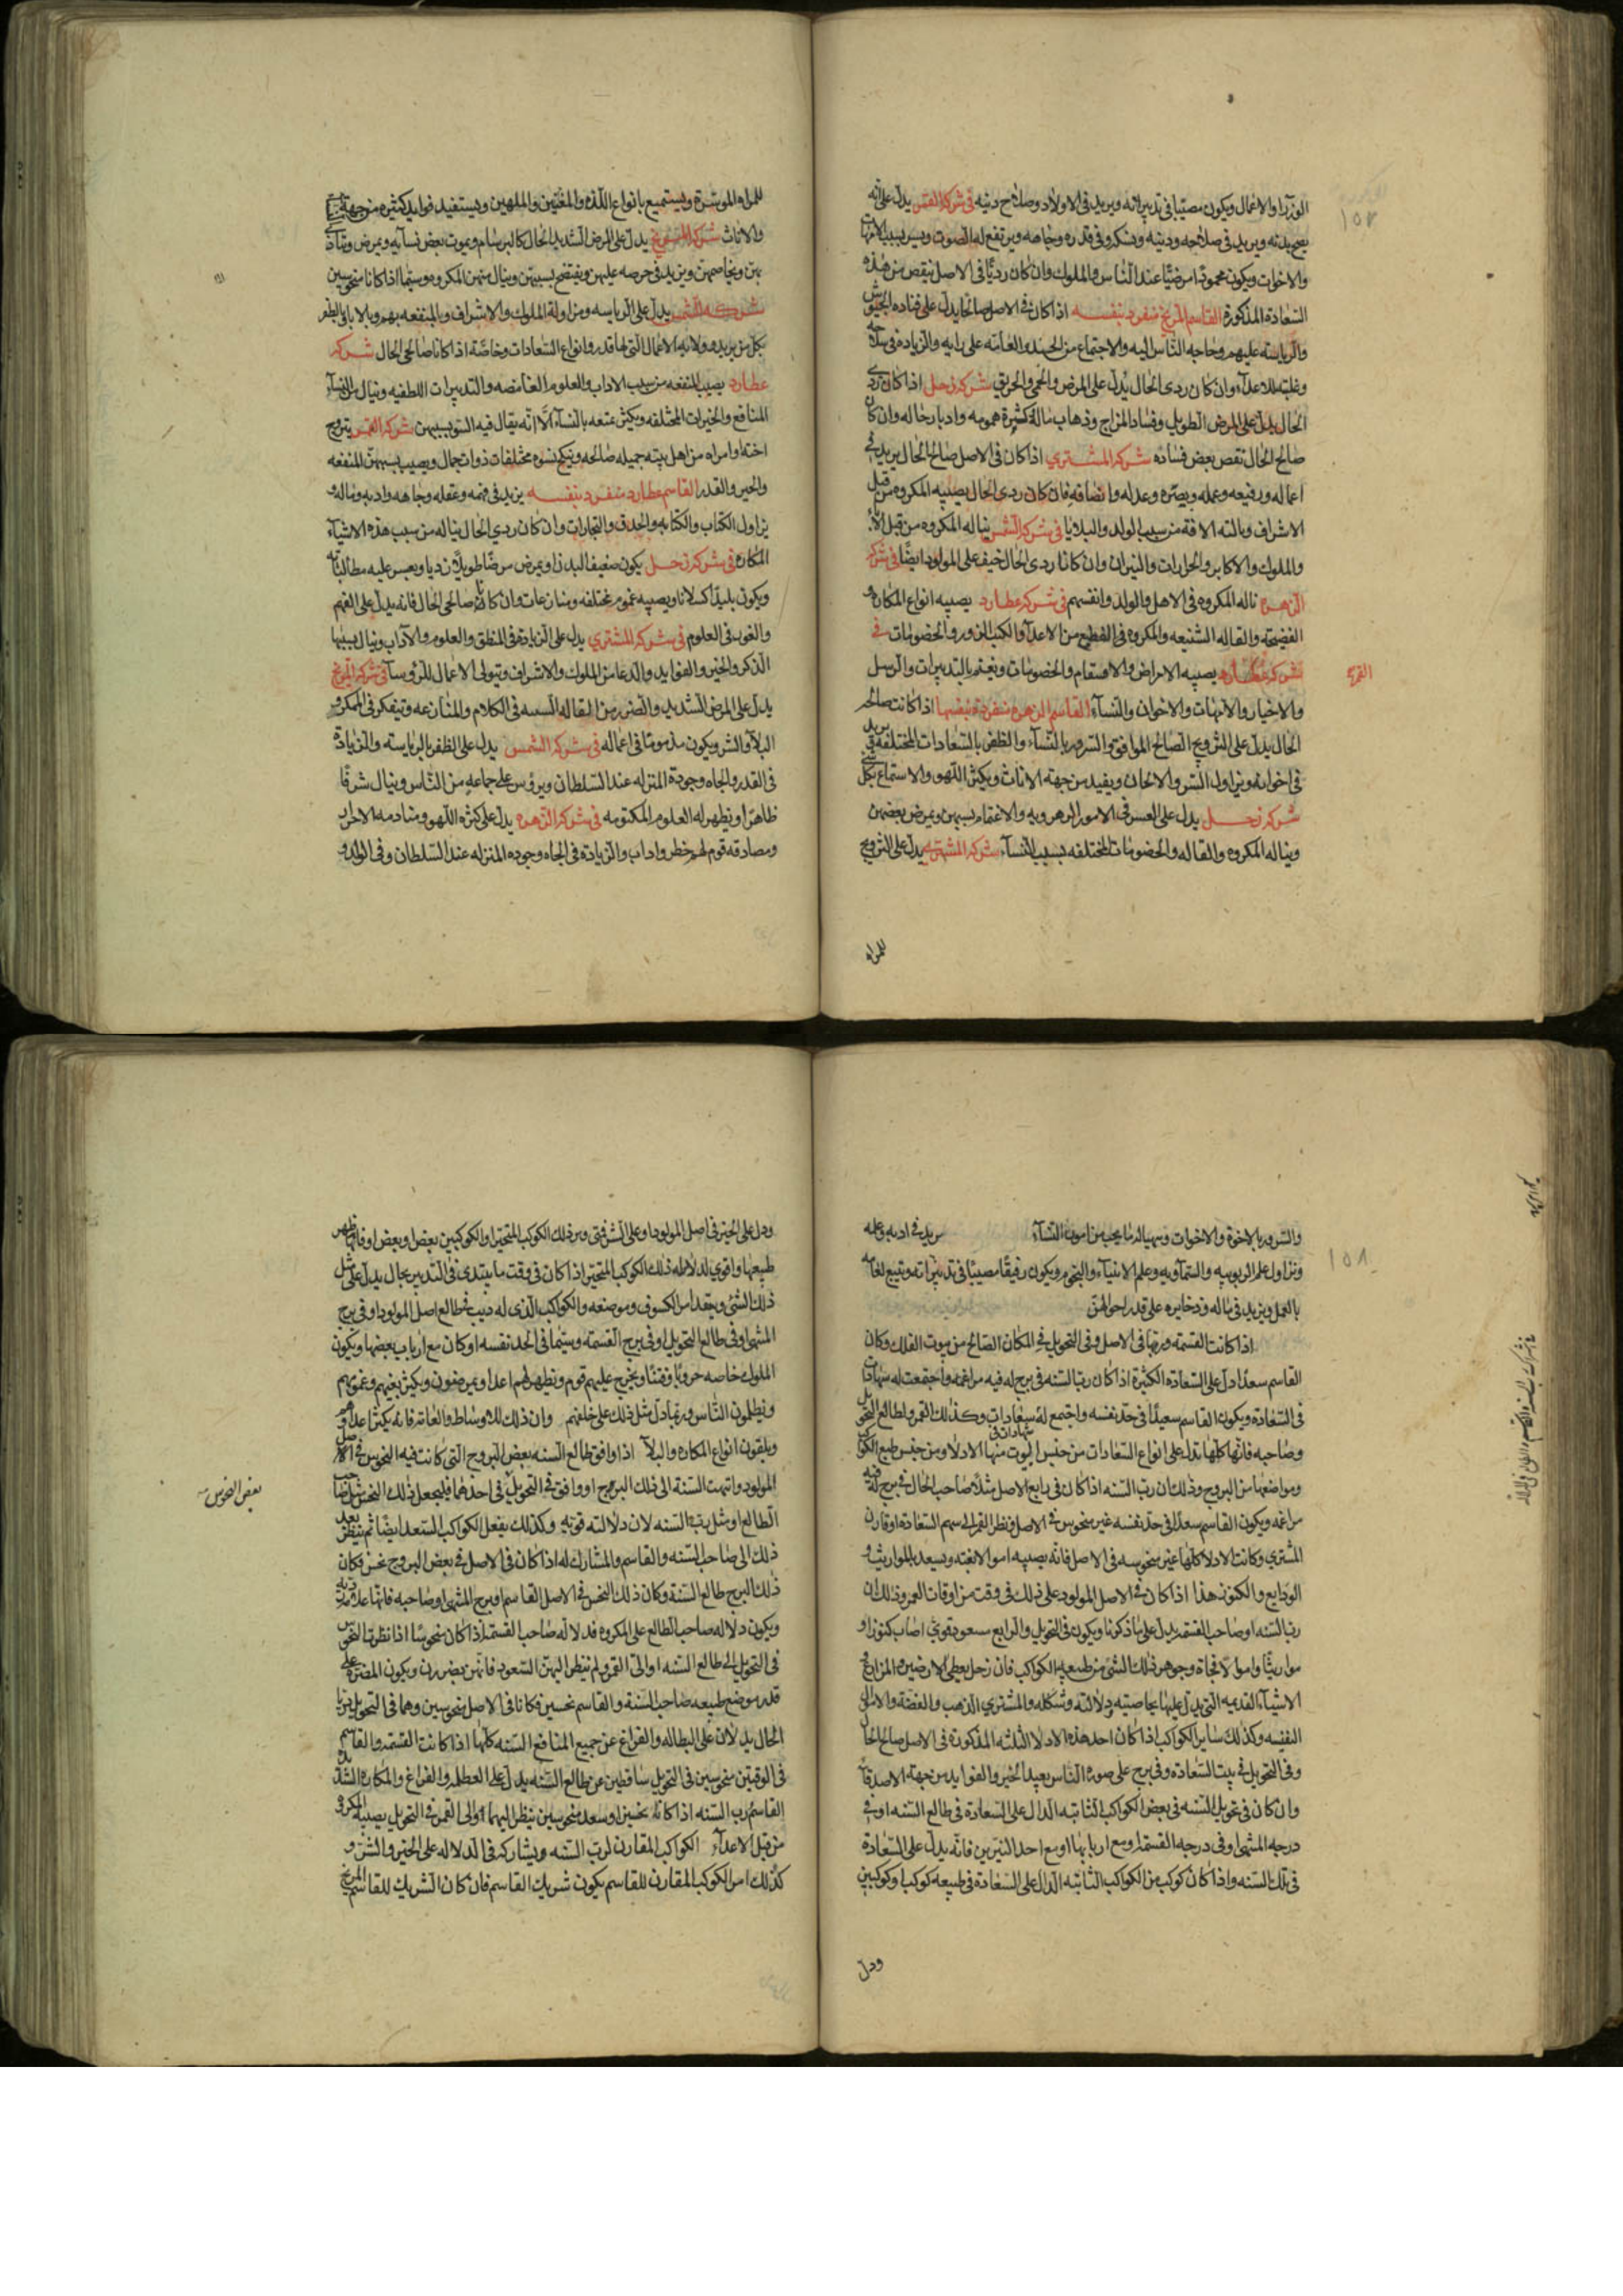 الوزرا والاعمال ويكون مصيبا في تدبيراته ويزيد في الاولاد وصلاح دينه في شركة القمر يدل على انه
يصح بدنه ويزيد في صلاحه ودينه وفي قدره وجاهه ويرتفع له الصوت ويسر بسبب الامهات
والاخوات ويكون محمودا مرضيا عند الناس والملوك وان كان رديا في الاصل نقص من هذه
السعادة المذكورة القاسم المريخ منفرد بنفسه اذا كان في الاصل صالحا يدل على قياده الجيوش
والرياسه عليهم وحاجه الناس اليه والاجتماع من الجند والعامه على رايه والزياده في سلاحه
وغلبته للاعداء وان كان ردي الحال يدل على المرض والحمى والحريق شركة زحل اذا كان ردي
الحال يدل على المرض الطويل وفساد المزاج وذهاب ماله وكثرة همومه وادبار حاله وان كان
صالح الحال نقص بعض فساده شركة المشتري اذا كان في الاصل صالح الحال يزيد في
اعماله ورفيعه وعمله وبصره وعدله وانصافه فان كان ردي الحال يصيبه المكروه من قبل
الاشراف ونالته الافة من سبب الولد والبلايا في شركة الشمس يناله المكروه من قبل الاباء
والملوك والاكابر والحرارات والنيران وان كانا ردي الحال خيف على المولود ايضا في شركة
الزهرة ناله المكروه في الاهل والولد وانفسهم في شركة عطارد يصيبه انواع المكاره و
الفضيحة والقاله الشنيعه والمكروه الفظيع من الاعداء والكتب الزور والخصومات في
شركة عطارد يصيبه الامراض والاسقام والخصومات ويغتم بالتدبيرات والرسل
القمر
والاخبار والامهات والاخوان والنساء القاسم الزهرة منفردة بنفسها اذا كانت صالحه
الحال يدل على التزويج الصالح الموافق والسرور بالنساء والظفر بالسعادات المختلفه يزيد
في اخوانه ويزاول الستر والالحان ويفيد من جهة الاناث ويكثر اللهو والاستماع بكل
شركة زحل يدل على العسر في الامور الزهروية والاغتمام بسببهن ويمرض بعضهن
ويناله المكروه والقاله والخصومات المختلفه بسبب النساء شركة المشتري يدل على التزويج
للمراه
للمراه الموسرة ويستمتع بانواع اللذه والمغنيين والملهين ويستفيد فوايد كثيره من جهة
والاناث شركة المريخ يدل على المرض الشديد الحال كالبرسام ويموت بعض نسائه ويمرض ويتاذى
بهن ويخاصمهن ويزيد في حرصه عليهن ويفتضح بسببهن وينال منهن المكروه سيما اذا كانا منحوسين
شركة الشمس يدل على الرياسه ومزاولة الملوك والاشراف والمنفعه بهم وبالاباء والظفر
بكل من يريده وولاية الاعمال التي لها قدر وانواع السعادات وخاصة اذا كانا صالحي الحال شركة
عطارد يصيب المنفعه من سبب الاداب والعلوم الغامضه والتدبيرات اللطيفه وينال من النساء
المنافع والخيرات المختلفه ويكثر تمتعه بالنساء الا انه يقال فيه السوء بسببهن شركة القمر يتزوج
اخته او امراه من اهل بيته جميله صالحه وينكح نسوه مختلفات ذوات جمال ويصيب بسببهن المنفعه
والخير والقدر القاسم عطارد منفرد بنفسه يزيد في فهمه وعقله وجاهه وادبه وماله و
يزاول الكتاب والكتابه والحذق والتجارات وان كان ردي الحال يناله من سبب هذه الاشياء
المكاره في شركة زحل يكون ضعيف البدن ويمرض مرضا طويلا رديا ويعسر عليه مطالباته
ويكون بليدا كسلانا ويصيبه غموم مختلفه ومنازعات وان كانا صالحي الحال فانه يدل على الفهم
والغور في العلوم في شركة المشتري يدل على الزيادة في المنطق والعلوم والاداب وينال بسببها
الذكر والخير والفوايد والدعا من الملوك والاشراف ويتولى الاعمال للرؤسا في شركة المريخ
يدل على المرض الشديد والضرر من المقاله السيئه في الكلام والمنازعه ويتفكر في المكر و
البلاء والشر ويكون مذموما في اعماله في شركة الشمس يدل على الظفر بالرياسه والزيادة
في القدر والجاه وجودة المنزله عند السلطان ويرؤس على جماعه من الناس وينال شرفا
ظاهرا ويظهر له العلوم المكتومه في شركة الزهرة يدل على كثرة اللهو ومنادمه الاحرار
ومصادقه قوم لهم خطر واداب والزيادة في الجاه وجوده المنزله عند السلطان وفي الولد و
والسرور بالاخوة والاخوات ويتهيا له ما يحب من امور النساء يزيد في ادبه وعلمه
ويزاول علم الربوبيه والسماويه وعلم الانبياء والنجوم ويكون رفيقا مصيبا في تدبيراته
بالعمل ويزيد في ماله وذخايره على قدر احوالهن
اذا كانت القسمه وربها في الاصل وفي التحويل في المكان الصالح من بيوت الفلك وكان
القاسم سعدا دل على السعادة الكثيرة اذا كان رب السنه في برج له فيه مزاعمه واجتمعت له شهادات
في السعادة ويكون القاسم سعيدا في حد نفسه واجتمع له سعادات وكذلك القمر ولطالع التحويل
وصاحبه فانها كلها تدل على انواع السعادات من جنس البيوت منها الادلا ومن جنس طبع الكواكب
ومواضعها من البروج وذلك ان رب السنه اذا كان في رابع الاصل مثلا صاحب الحال في برج له فيه
مزاعمه ويكون القاسم سعدا في حد نفسه غير منحوس في الاصل ونظر القمر الى سهم السعادة او قارن
المشتري وكانت الادلا كلها غير منحوسه في الاصل فانه يصيبه اموالا بغته ويسعد بالمواريث و
الودايع والكنوز هذا اذا كان في الاصل المولود على ذلك في وقت من اوقات العمر وذلك ان
رب السنه او صاحب القسمه يدل على ما ذكرنا ويكون في التحويل والرابع سعود قوي اصاب كنوزا و
مواريثا واموالا فجاة وجوهر ذلك الشيء من طبيعه الكواكب فان زحل يعطي الارضين والمزارع و
الاشياء القديمه التي يدل عليها بخاصيته ودلالته وشكله والمشتري الذهب والفضة والاموال
النفيسه وكذلك ساير الكواكب اذا كان احد هذه الادلا الثلثه المذكورة في الاصل صالح الحال
وفي التحويل في بيت السعادة وفي برج على صورة الناس يفيد الخير والفوايد من جهة الاصدقاء
وان كان في تحويل السنه في بعض الكواكب الثابته الدال على السعادة في طالع السنه او في
درجه المنتهى او في درجه القسمه او مع اربابها او مع احد النيرين فانه يدل على السعادة
في تلك السنه واذا كان كوكب من الكواكب الثابته الدال على السعادة في طبيعه كوكب او كوكبين
ودل
ودل على الخير في اصل المولود او على الشر فمتى دبر ذلك الكوكب المتحير او الكوكبين بعض او بعض اوقاتها ظهر
طبيعها واقوى لدلالة ذلك الكوكب المتحير اذا كان في وقت ما يبتدي في التدبير بحال يدل على مثل
ذلك الشيء ويتفقد امر الكسوف وموضعه والكواكب الذي له دبيب في طالع اصل المولود او في برج
المنتهى او في طالع التحويل او في برج القسمه وسيما في الحد نفسه او كان مع ارباب بعضها ويكون
الملوك خاصه حروبا وفتنا ويخرج عليهم قوم ويظهر لهم اعدا ويمرضون ويكثر بغيهم وغمومهم
ويظلمون الناس وربما دل مثل ذلك على خلعهم وان ذلك للاوساط والعامة فانه يكثر اعداوهم
ويلقون انواع المكاره والبلاء اذا وافق طالع السنه بعض البروج التي كانت فيه النحوس في اصل
المولود وانتهت السنة الى ذلك البرج او وافق في التحويل في احدهما فليجعل ذلك النحس مثل صاحب
بعض النحوس
الطالع او مثل رب السنه لان دلالته قويه وكذلك يفعل الكواكب السعد ايضا ثم ينظر بعد
ذلك الى صاحب السنه والقاسم والمشارك له اذا كان في الاصل في بعض البروج نحس فكان
ذلك البرج طالع السنة وكان ذلك النحس في الاصل القاسم او برج المنتهى او صاحبه فانها علامة ردية
ويكون دلاله صاحب الطالع على المكروه قد لاله صاحب القسمه اذا كان منحوسا اذا نظرت النحوس
في التحويل الى طالع السنه او الى القمر ولم ينظر اليهن السعود فانهن يضررن ويكون المضرة على
قدر موضع طبيعه صاحب السنة والقاسم نحسين فكانا في الاصل منحوسين وهما في التحويل رديا
الحال يدلان على البطاله والفراغ عن جميع المنافع السنه كلها اذا كانت القسمه والقاسم
في الوقتين منحوسين في التحويل ساقطين عن طالع السنه يدل على العطله والفراغ والمكاره الشديدة
القاسم رب السنه اذا كانا نحسين او سعد منحوسين ينظر اليهما او الى القمر في التحويل يصيبه المكروه
من قبل الاعداء الكواكب المقارن لرب السنه ويشاركه في الدلاله على الخير والشر و
كذلك امر الكوكب المقارن للقاسم يكون شريك القاسم فان كان الشريك للقاسم المريخ